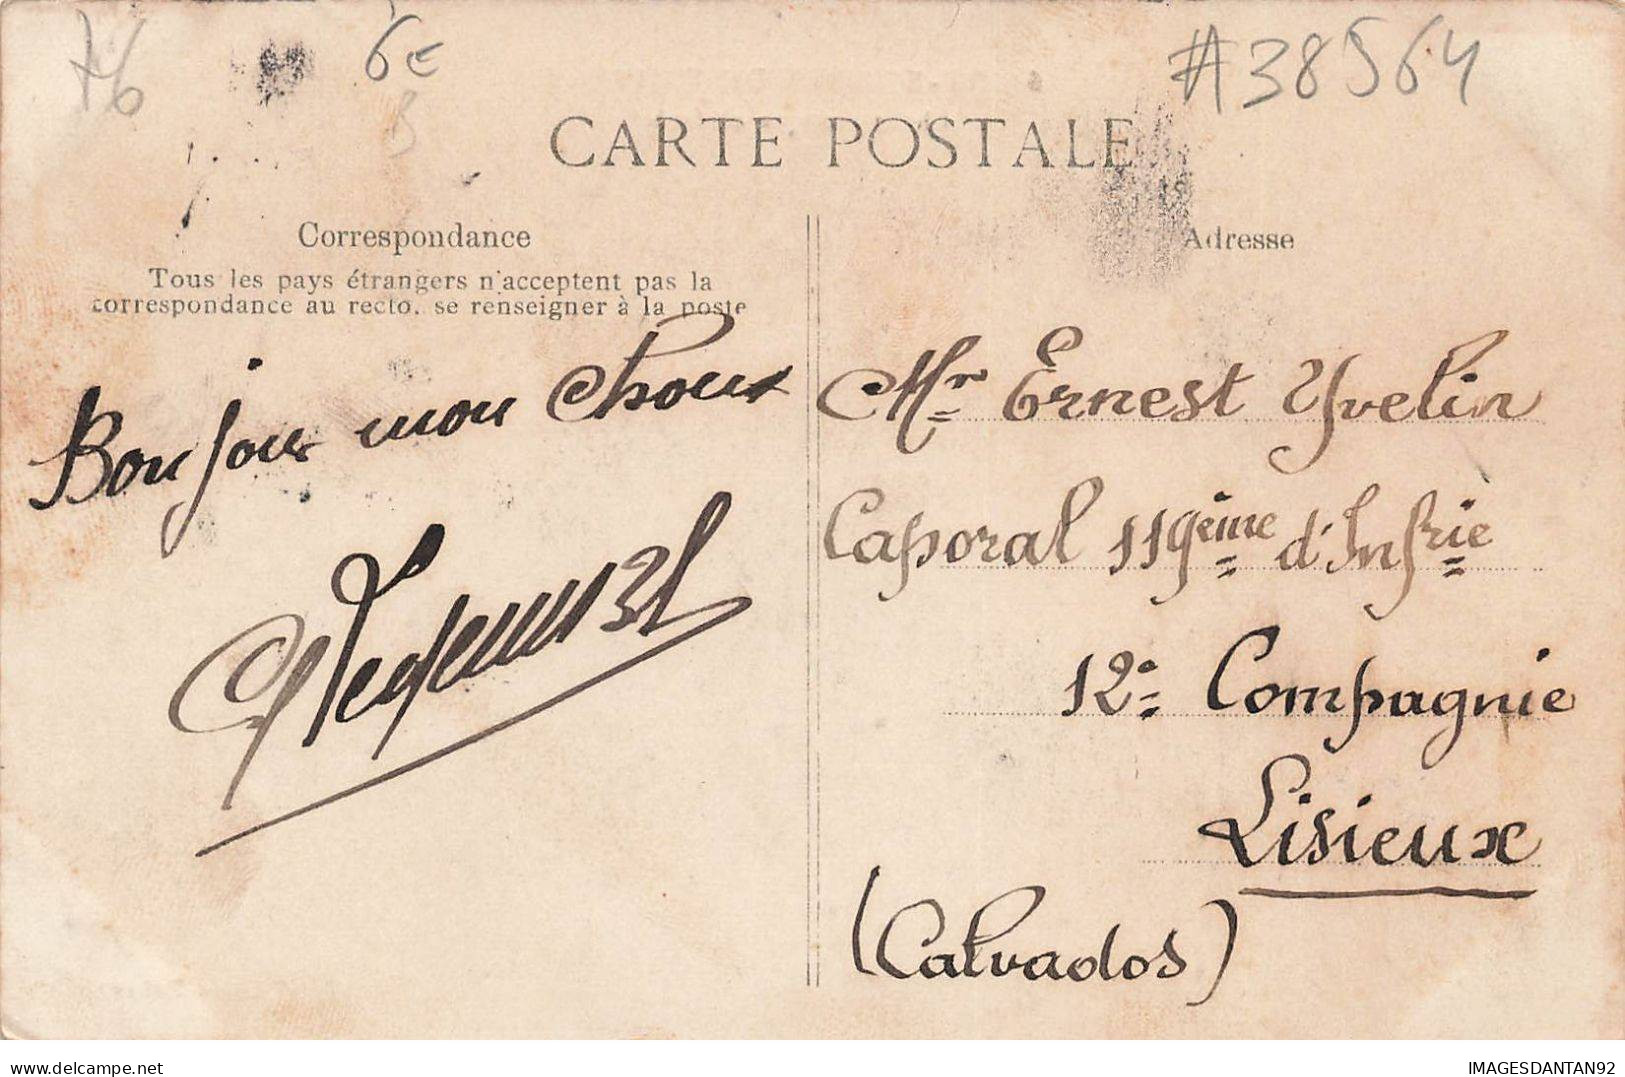 76
6€
#38564
CARTE POSTALE
Correspondance
Tous les pays étrangers n'acceptent pas la
correspondance au recto. se renseigner à la poste
Bonjour mon Choux
Adresse
Mr Ernest Yvelin
Caporal 119ème d'Infrie
12e Compagnie
Lisieux
(Calvados)
IMAGESDANTAN92